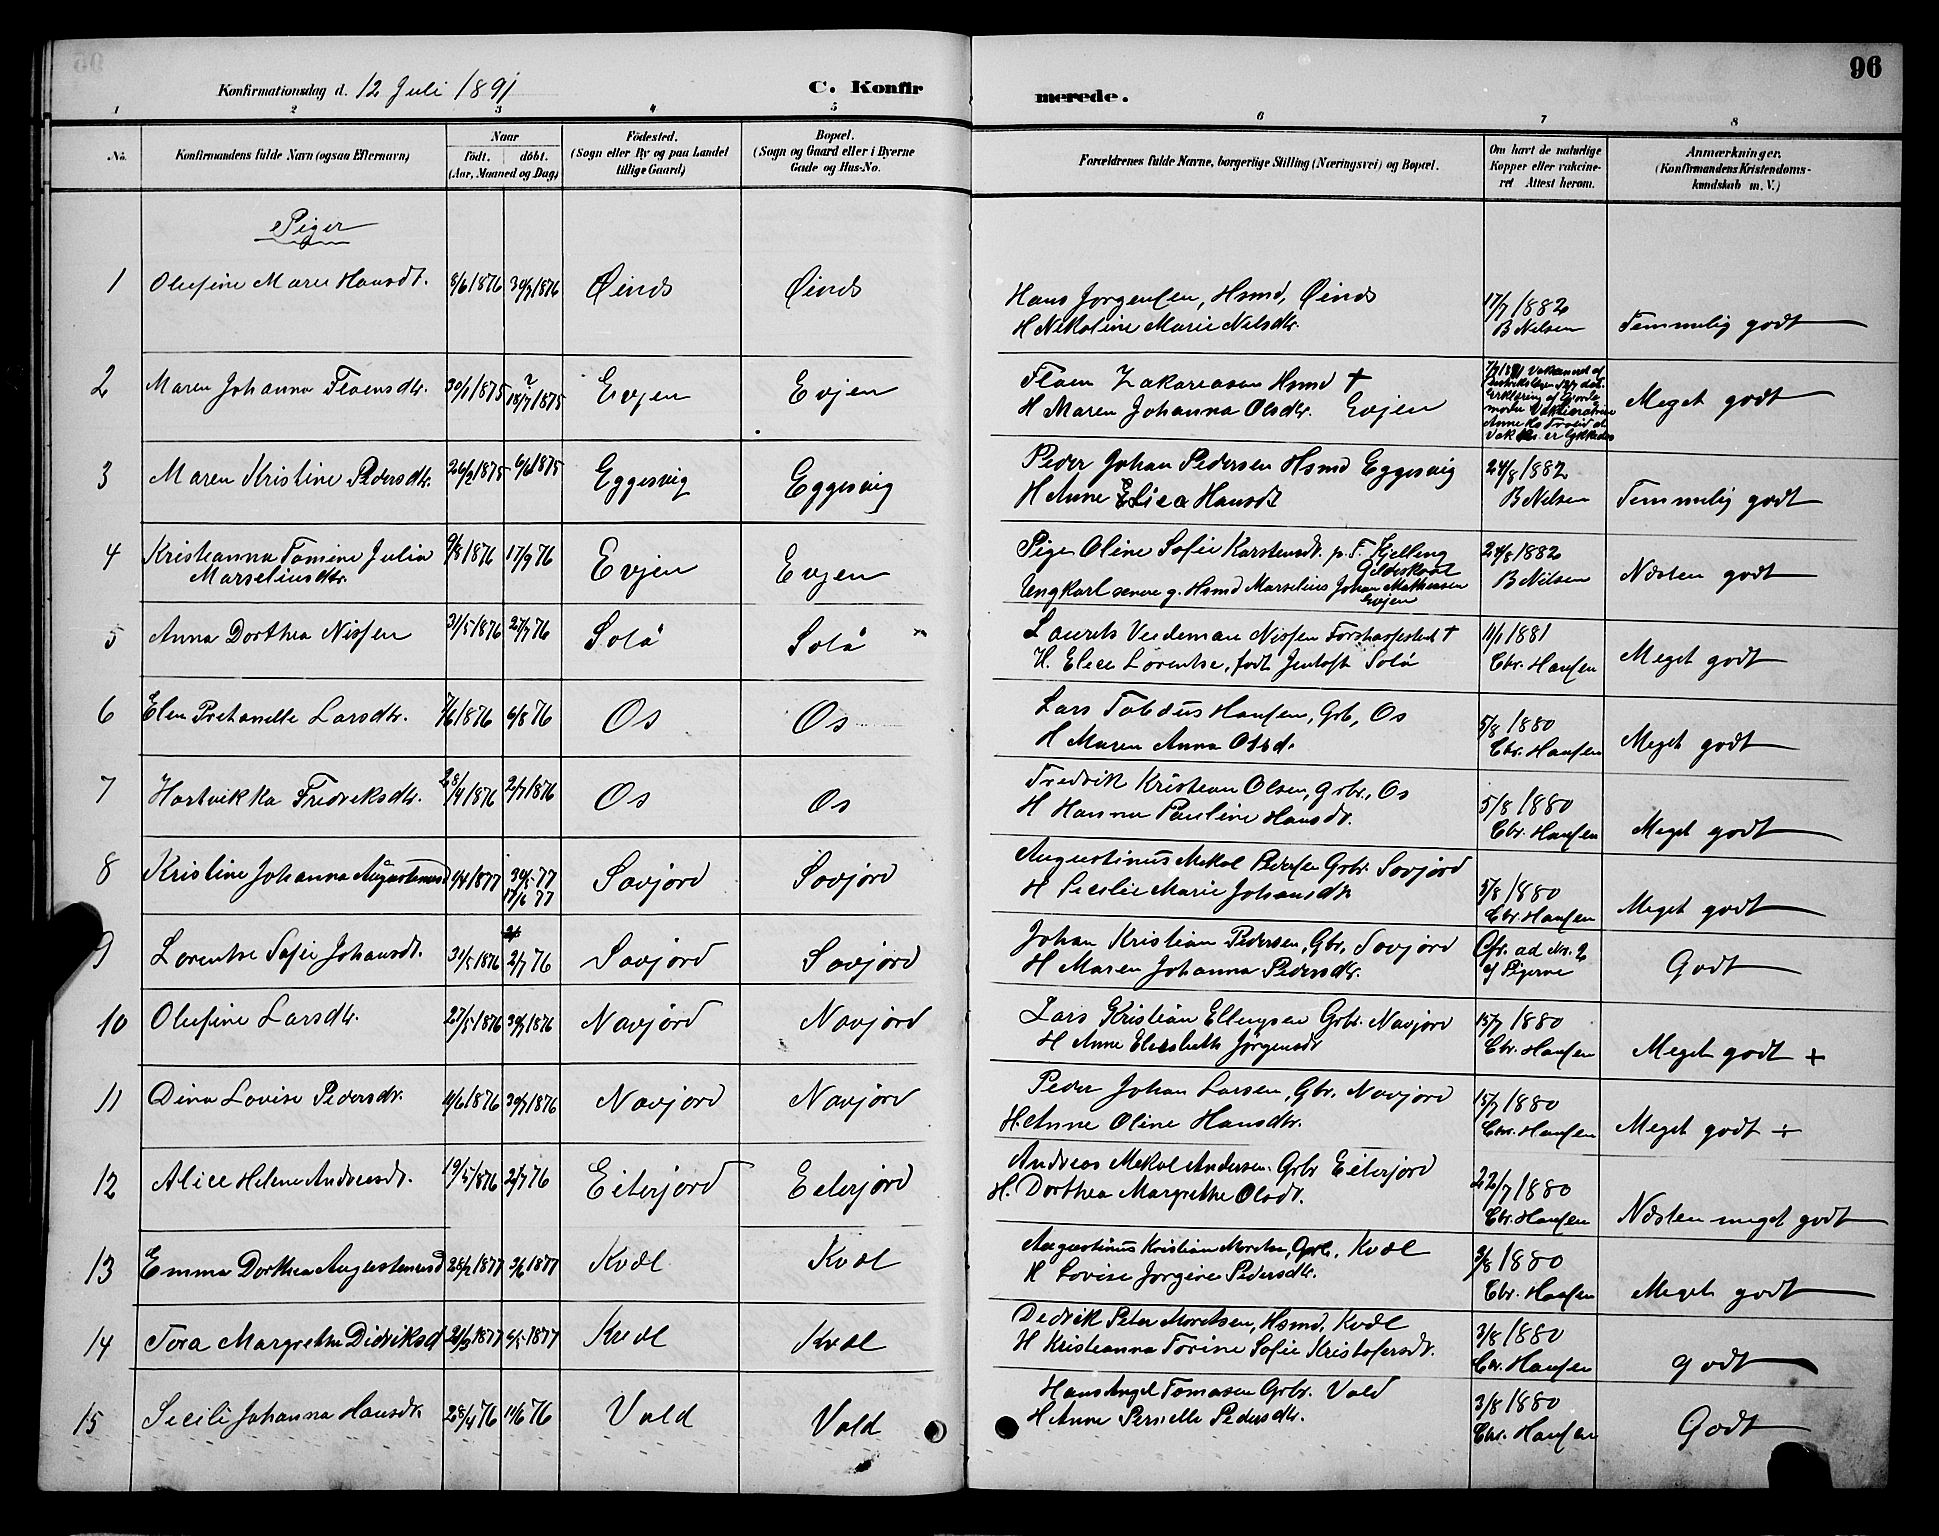 96
Konfirmationsdag d. 12 Juli 1891
C. Konfirmerede.
1 2 3 4 5 6 7 8
No.
Konfirmandens fulde Navn (ogsaa Efternavn)
Naar
født. døbt.
(Aar, Maaned og Dag)
Födested.
(Sogn eller By og paa Landet
tillige Gaard)
Bopæl.
(Sogn og Gaard eller i Byerne
Gade og Hus-No.
Forældrenes fulde Navne, borgerlige Stilling (Næringsvei) og Bopæl.
Om havt de naturlige
Kopper eller vakcine-
ret Attest herom.
Anmærkninger.
(Konfirmandens Kristendoms-
kundskab m. V.)
Piger
1 Olufine Marie Hansdt. 8/6 1876 30/7 1876 Øinds Øinds
Hans Jørgensen, Hsmd, Øinds
H Nikoline Marie Nilsdtr.
17/7 1882
B Nilsen
Temmelig godt
2 Maren Johanna Floensdtr. 30/1 1875 ? 18/7 1875 Evjen Evjen
Floen Zakariasen Hsmd †
H Maren Johanna Olsdtr. Evjen
Meget godt
3 Maren Kristine Pedersdtr. 26/2 1875 6/6 1875 Eggesvig Eggesvig
Peder Johan Pedersen Hsmd Eggesvig
H Anne Elica Hansdt
24/8 1882
B Nilsen
Temmelig godt
4 Kristianna Tomine Julia
Marseliusdtr.
9/8 1876 17/9 76 Evjen Evjen
Pige Oline Sofie Karstensdt. p. F. Kjelling
Gildeskaal
Ungkarl senere g. Hsmd Marselius Johan Mathiasen
Evjen
24/8 1882
B Nilsen
Næsten godt
5 Anna Dorthea Nissen 31/5 1876 27/7 76 Solø Solø
Laurits Veideman Nissen Forstassistent †
H. Elice Lorentse, født Jentoft Solø
11/1 1881
Chr. Hansen
Meget godt
6 Elen Pretanelle Larsdtr. 7/6 1876 6/8 76 Os Os
Lars Tobeus Hansen, Grb, Os
H Maren Anna Olsd.
5/8 1880
Chr. Hansen
Meget godt
7 Hartvikka Fredriksdtr. 28/4 1876 2/7 1876 Os Os
Fredrik Kristian Olsen, Grbr., Os
H Hanna Pauline Hansdt.
5/8 1880
Chr. Hansen
Meget godt
8 Kristine Johanna Augustinusd 1/4 1877 30/5 77
17/6 77 Sovjord Sovjord
Augustinus Mikal Pedersen Grbr. Sovjord
H Sicelie Marie Johansdtr
5/8 1880
Chr. Hansen
Meget godt
9 Lorentse Sofie Johansdt. 31/5 1876 2/7 76 Sovjord Sovjord
Johan Kristian Pedersen, Gbr. Sovjord
H Maren Johanna Pedersdtr.
Cfr. ad No. 2
af Pigerne
Godt
10 Olufine Larsdtr. 27/5 1876 30/7 1876 Navjord Navjord
Lars Kristian Ellingsen Grbr. Navjord
H Anne Elisabeth Jørgensdt
15/7 1880
Chr. Hansen
Meget godt +
11 Dina Lovise Pedersdtr. 11/6 1876 30/7 1876 Navjord Navjord
Peder Johan Larsen, Gbr. Navjord
H. Anne Oline Hansdtr.
15/7 1880
Chr. Hansen
Meget godt ÷
12 Alice Helene Andreasdt. 19/5 1876 2/7 76 Eiterjord Eiterjord
Andreas Mikal Andersen. Grbr Eiterjord
H. Dorthea Margrethe Olsdt.
22/7 1880
Chr. Hansen
Næsten meget godt
13 Emma Dorthea Augustinusd 28/2 1877 3/6 1877 Kvæl Kvæl
Augustinus Kristian Moritsen, Grb., Kvæl
H Lovise Jørgine Pedersdtr.
3/8 1880
Chr. Hansen
Meget godt
14 Tora Margrethe Didriksd 21/3 1877 6/5 1877 Kvæl Kvæl
Dedrik Peter Moritsen, Hsmd, Kvæl
H Kristianna Torine Sofie Kristofersdt.
3/8 1880
Chr. Hansen
godt
15 Sicili Johanna Hansdtr 28/4 76 11/6 76 Vald Vald
Hans Angel Tomasen Grbr. Vald
H Anne Pernelle Pedersdtr.
3/8 1880
Chr. Hansen
Godt